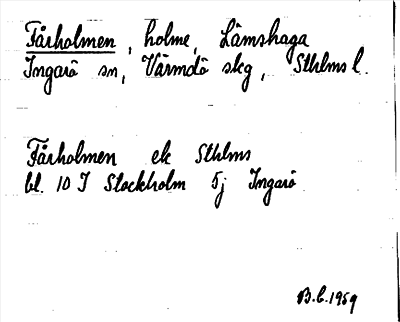 Fårholmen, holme, Lämshaga
Ingarö sn, Värmdö skg, Sthlms l.
Fårholmen ek Sthlms
bl. 10 I Stockholm 5j Ingarö
B.C. 1959